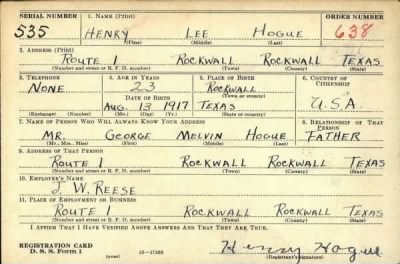 SERIAL NUMBER 1. NAME (Print) ORDER NUMBER
535 HENRY LEE HOGUE 638
(First) (Middle) (Last)
2. ADDRESS (Print)
ROUTE 1 ROCKWALL ROCKWALL TEXAS
(Number and street or R. F. D. number) (Town) (County) (State)
3. TELEPHONE 4. AGE IN YEARS 5. PLACE OF BIRTH 6. COUNTRY OF CITIZENSHIP
NONE 23 ROCKWALL
(Town or county)
DATE OF BIRTH
AUG. 13 1917 TEXAS U.S.A.
(Exchange) (Number) (Mo.) (Day) (Yr.) (State or country)
7. NAME OF PERSON WHO WILL ALWAYS KNOW YOUR ADDRESS 8. RELATIONSHIP OF THAT PERSON
MR. GEORGE MELVIN HOGUE FATHER
(Mr., Mrs., Miss) (First) (Middle) (Last)
9. ADDRESS OF THAT PERSON
ROUTE 1 ROCKWALL ROCKWALL TEXAS
(Number and street or R. F. D. number) (Town) (County) (State)
10. EMPLOYER'S NAME
J. W. REESE
11. PLACE OF EMPLOYMENT OR BUSINESS
ROUTE 1 ROCKWALL ROCKWALL TEXAS
(Number and street or R. F. D. number) (Town) (County) (State)
I AFFIRM THAT I HAVE VERIFIED ABOVE ANSWERS AND THAT THEY ARE TRUE.
REGISTRATION CARD
D. S. S. Form 1 (over) 16-17105 Henry Hogue
(Registrant's signature)